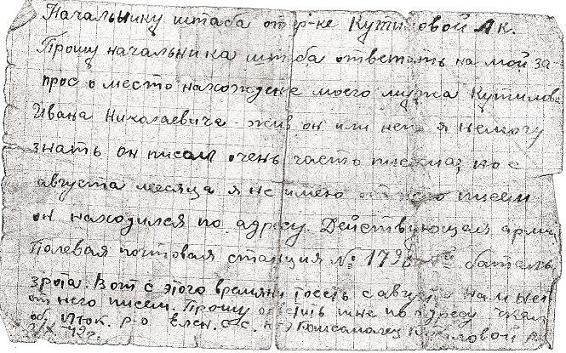 Начальнику штаба от гр-ке Кутиловой Як.
Прошу начальника штаба ответить на мой за-
прос о место нахождение моего мужа Кутилова
Ивана Николаевича жив он или нет я немогу
знать он писал очень часто письма, но с
августа месяца я не имею от него писем
он находился по адресу. Действующая арми
Полевая почтовая станция № 1793 баталь
3 рота. Вот с этого времяни тоесть с август нам нет
от него писем. Прошу ответить мне по адресу
об. р-о Елен. с.с. Кутиловой